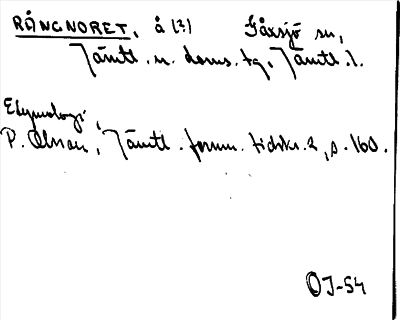 RÅNGNORET, å (?) Fåxsjö sn,
Jämtl. n. doms. tg, Jämtl. l.
Etymologi,
P. Olsson, Jämtl. fornm. tidskr. 2, s. 160.
OJ-54